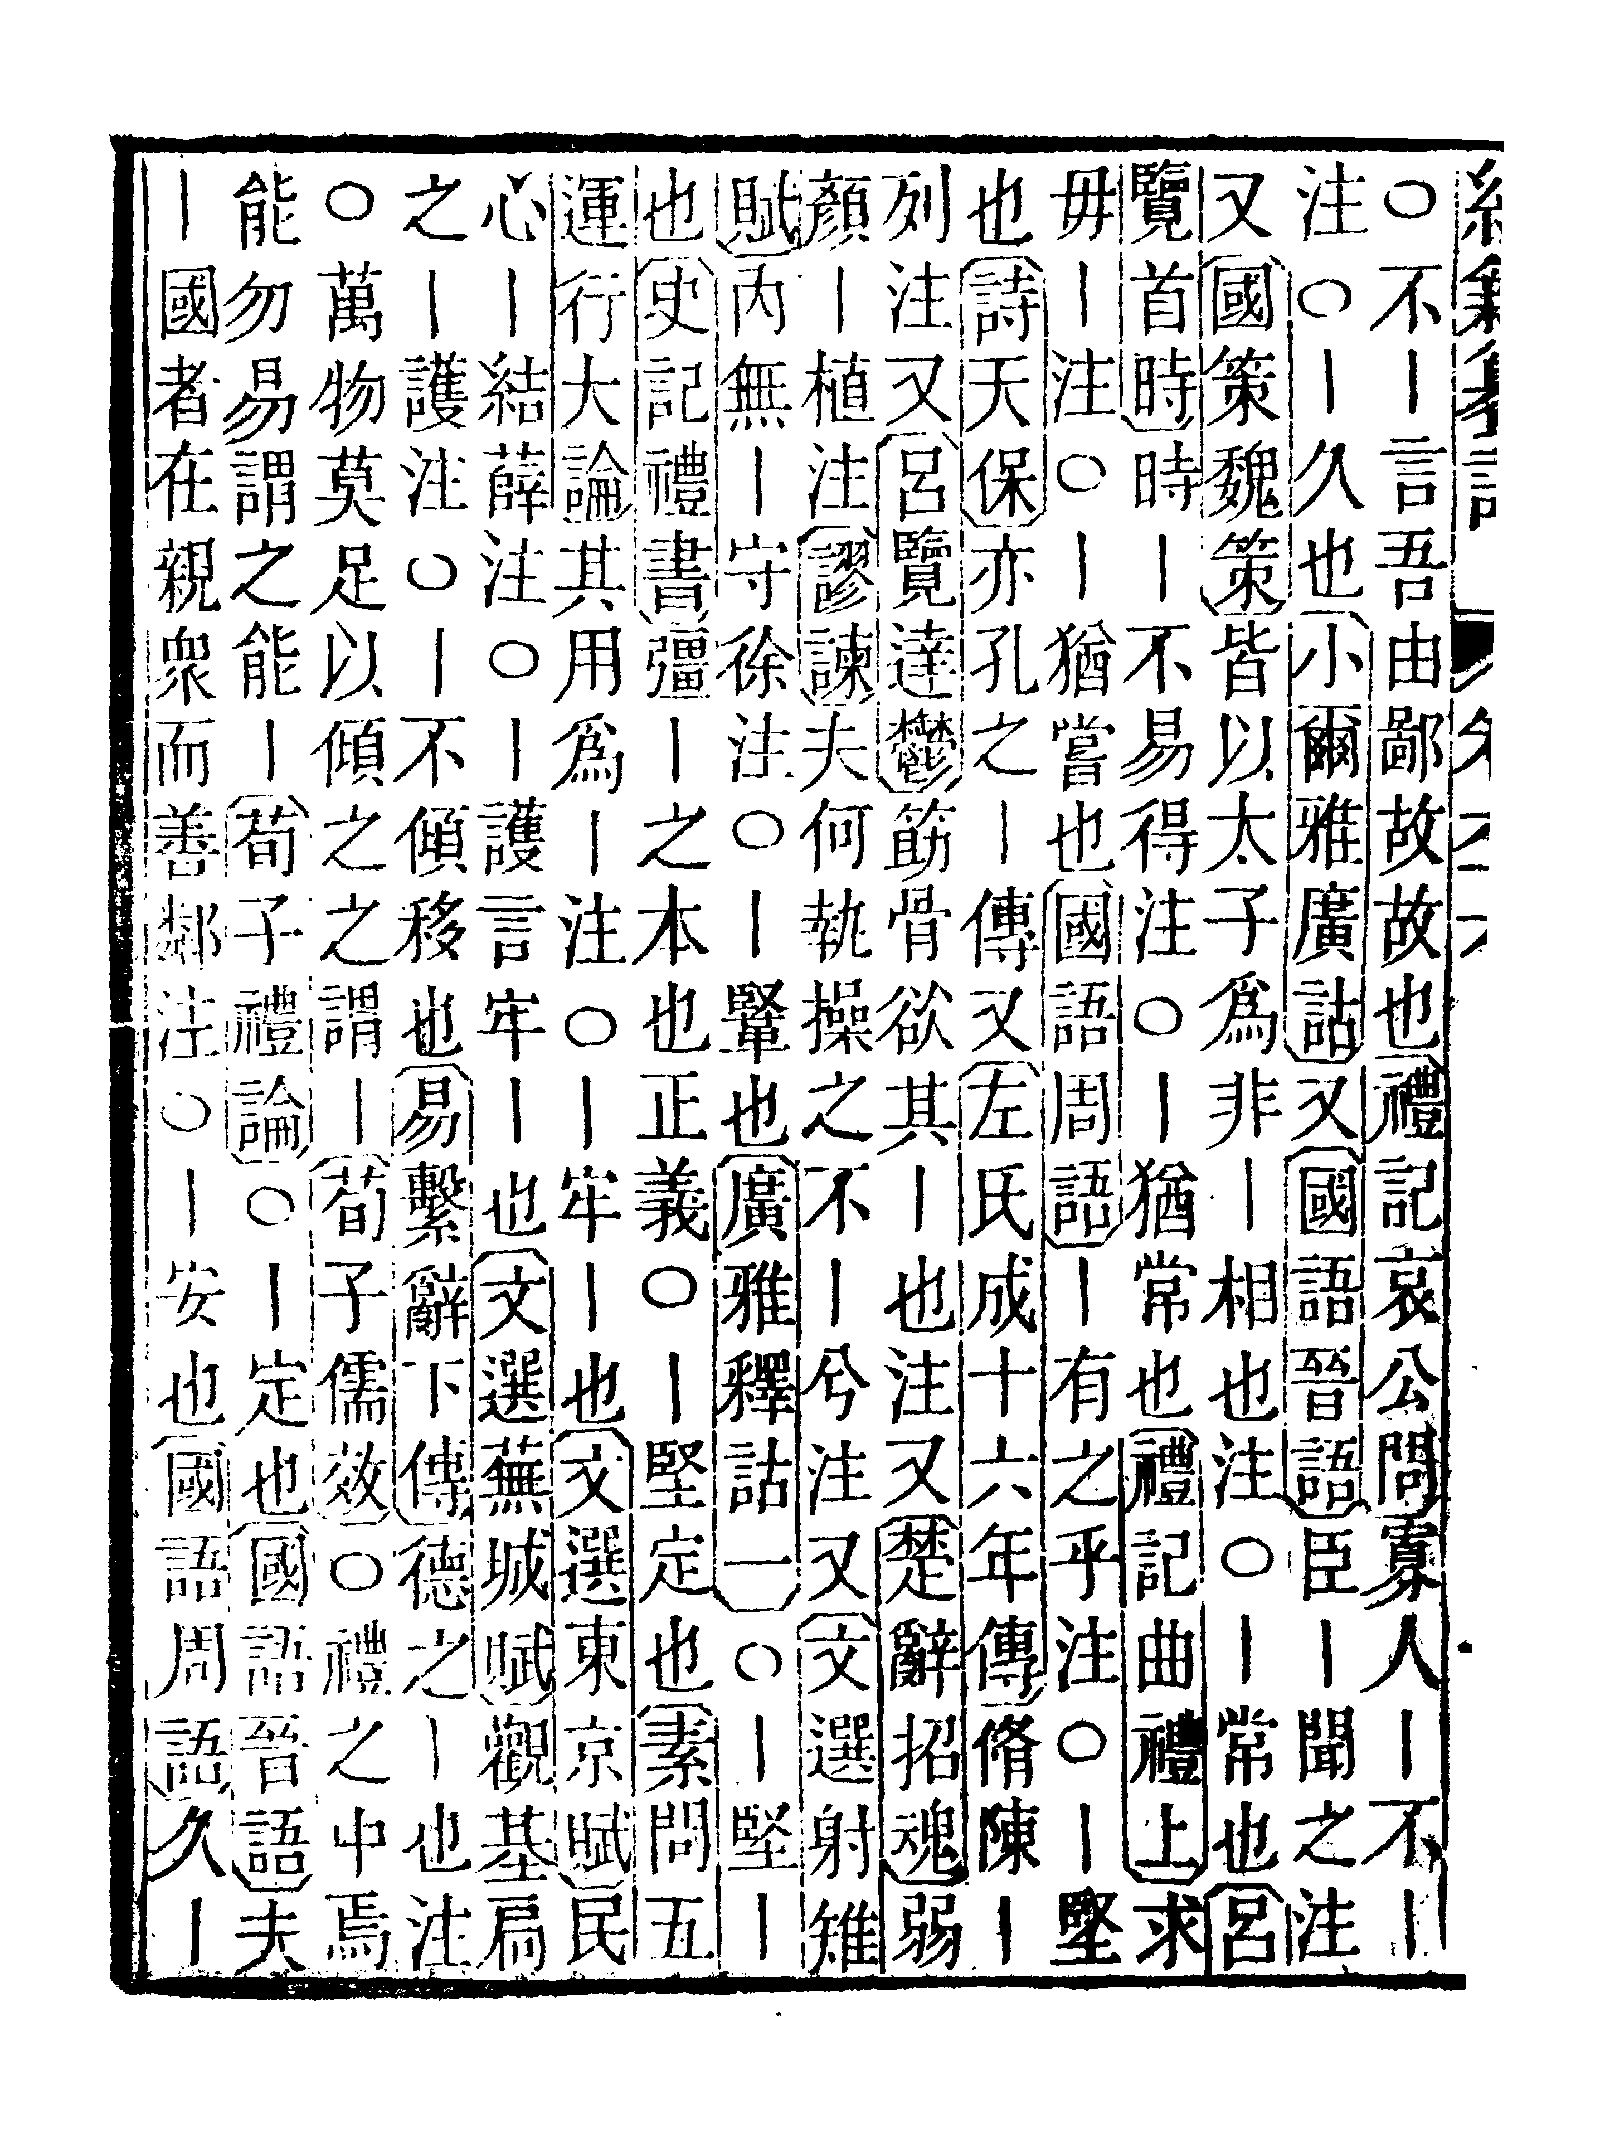 經籍籑詁
○不｜言吾由鄙故故也禮記哀公問寡人｜不｜
注○｜久也小爾雅廣詁又國語晉語臣｜聞之注
又國策魏策皆以太子爲非｜相也注○｜常也呂
覽首時時｜不易得注○｜猶常也禮記曲禮上求
毋｜注○｜猶嘗也國語周語｜有之乎注○｜堅
也詩天保亦孔之｜傳又左氏成十六年傳脩陳｜
列注又呂覽達鬱筋骨欲其｜也注又楚辭招魂弱
顏｜植注謬諫夫何執操之不｜兮注又文選射雉
賦內無｜守徐注○｜鞏也廣雅釋詁一○｜堅｜
也史記禮書彊｜之本也正義○｜堅定也素問五
運行大論其用爲｜注○｜牢｜也文選東京賦民
心｜結薛注○｜護言牢｜也文選蕪城賦觀基扃
之｜護注○｜不傾移也易繫辭下傳德之｜也注
○萬物莫足以傾之之謂｜荀子儒效○禮之中焉
能勿易謂之能｜荀子禮論○｜定也國語晉語夫
｜國者在親衆而善鄰注○｜安也國語周語久｜